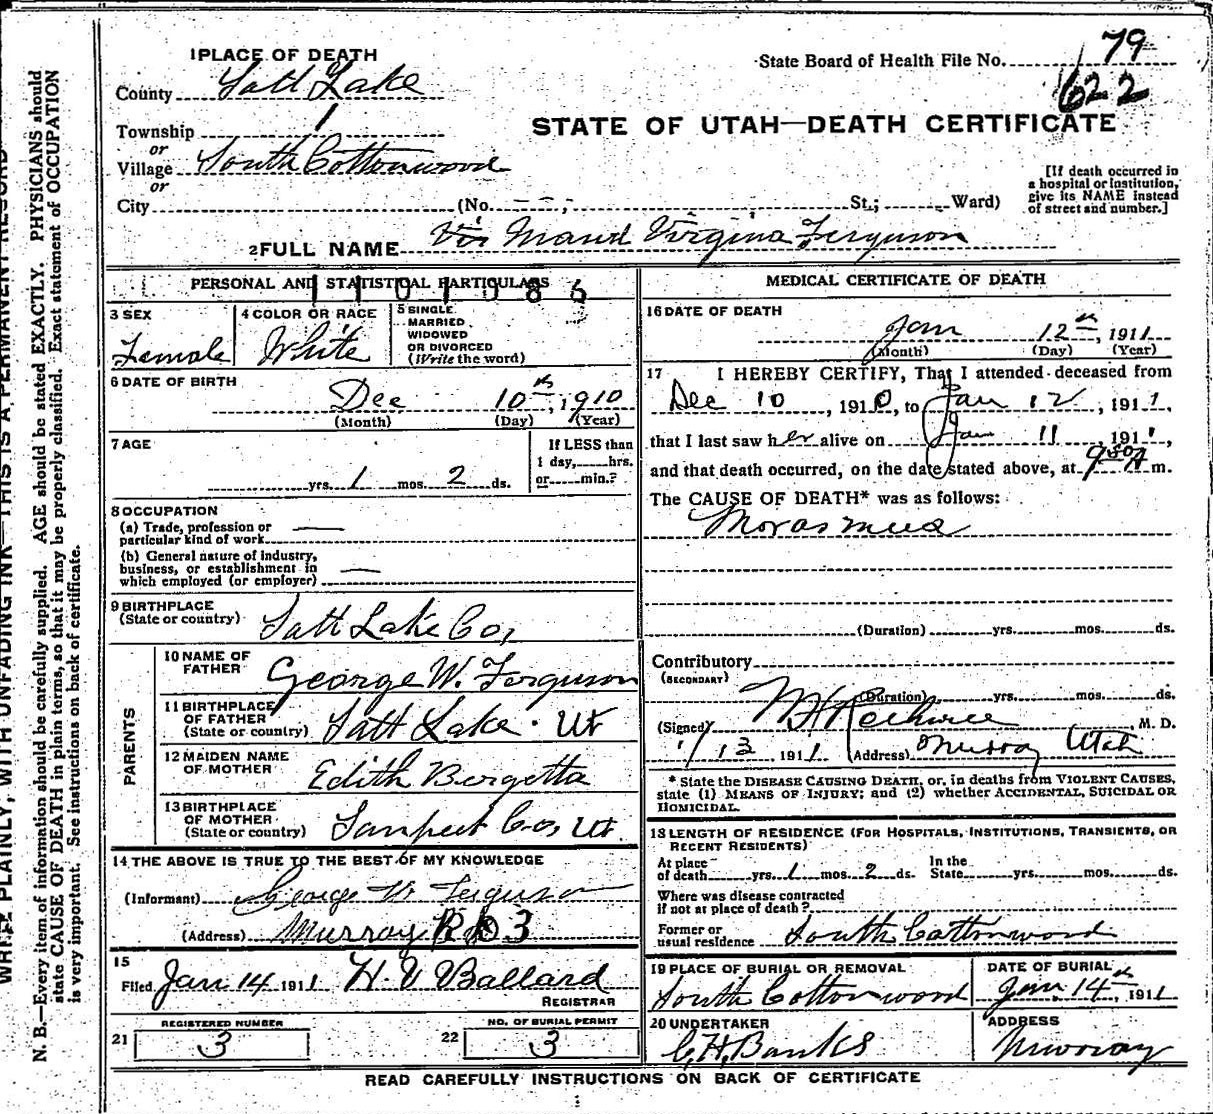 1 PLACE OF DEATH
State Board of Health File No. 79
County Salt Lake
622
Township 1
STATE OF UTAH—DEATH CERTIFICATE
or
Village South Cottonwood
or
[If death occurred in
a hospital or institution,
give its NAME instead
of street and number.]
City (No. St.; Ward)
2 FULL NAME Maud Virginia Ferguson
PERSONAL AND STATISTICAL PARTICULARS
1101086
3 SEX
Female
4 COLOR OR RACE
White
5 SINGLE
MARRIED
WIDOWED
OR DIVORCED
(Write the word)
6 DATE OF BIRTH
Dec 10th, 1910
(Month) (Day) (Year)
7 AGE
yrs. 1 mos. 2 ds.
If LESS than
1 day, hrs.
or min.?
8 OCCUPATION
(a) Trade, profession or
particular kind of work
(b) General nature of industry,
business, or establishment in
which employed (or employer)
9 BIRTHPLACE
(State or country) Salt Lake Co,
PARENTS
10 NAME OF
FATHER George W. Ferguson
11 BIRTHPLACE
OF FATHER
(State or country) Salt Lake. Ut
12 MAIDEN NAME
OF MOTHER Edith Bergetta
13 BIRTHPLACE
OF MOTHER
(State or country) Sanpeet Co, Ut.
14 THE ABOVE IS TRUE TO THE BEST OF MY KNOWLEDGE
(Informant) George W Ferguson
(Address) Murray R D 3
15
Filed Jan 14 1911 H. V Ballard
REGISTRAR
21 REGISTERED NUMBER
3
22 NO. OF BURIAL PERMIT
3
MEDICAL CERTIFICATE OF DEATH
16 DATE OF DEATH
Jan 12th, 1911
(Month) (Day) (Year)
17 I HEREBY CERTIFY, That I attended deceased from
Dec 10, 1910, to Jan 12, 1911,
that I last saw her alive on Jan 11, 1911,
and that death occurred, on the date stated above, at 950 A m.
The CAUSE OF DEATH* was as follows:
Morasmus
(Duration) yrs. mos. ds.
Contributory
(SECONDARY)
(Duration) yrs. mos. ds.
(Signed) M. D.
1/13, 1911 (Address) Murray Utah
* State the DISEASE CAUSING DEATH, or, in deaths from VIOLENT CAUSES,
state (1) MEANS OF INJURY; and (2) whether ACCIDENTAL, SUICIDAL OR
HOMICIDAL.
18 LENGTH OF RESIDENCE (FOR HOSPITALS, INSTITUTIONS, TRANSIENTS, OR
RECENT RESIDENTS)
At place
of death yrs. 1 mos. 2 ds.
In the
State yrs. mos. ds.
Where was disease contracted
if not at place of death?
Former or
usual residence South Cottonwood
19 PLACE OF BURIAL OR REMOVAL
South Cottonwood
DATE OF BURIAL
Jan. 14th, 1911
20 UNDERTAKER
C, H, Banks
ADDRESS
Murray
READ CAREFULLY INSTRUCTIONS ON BACK OF CERTIFICATE
WRITE PLAINLY, WITH UNFADING INK—THIS IS A PERMANENT RECORD
N. B.—Every item of information should be carefully supplied. AGE should be stated EXACTLY. PHYSICIANS should
state CAUSE OF DEATH in plain terms, so that it may be properly classified. Exact statement of OCCUPATION
is very important. See instructions on back of certificate.